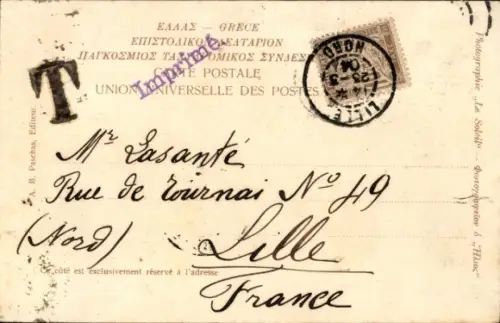 ΕΛΛΑΣ — GRECE
ΕΠΙΣΤΟΛΙΚΟΝ ΔΕΛΤΑΡΙΟΝ
ΠΑΓΚΟΣΜΙΟΣ ΤΑΧΥΔΡΟΜΙΚΟΣ ΣΥΝΔΕΣ
CARTE POSTALE
UNION UNIVERSELLE DES POSTES
Imprimé
T
LILLE
NORD
23-3
04
Mr Lasanté
Rue de Tournai No 49
(Nord) Lille
France
Ce côté est exclusivement réservé à l'adresse
A. B. Paschas, Editeur
Photographie „Le Soleil“ — Φωτογραφεῖον ὁ „Ἥλιος“